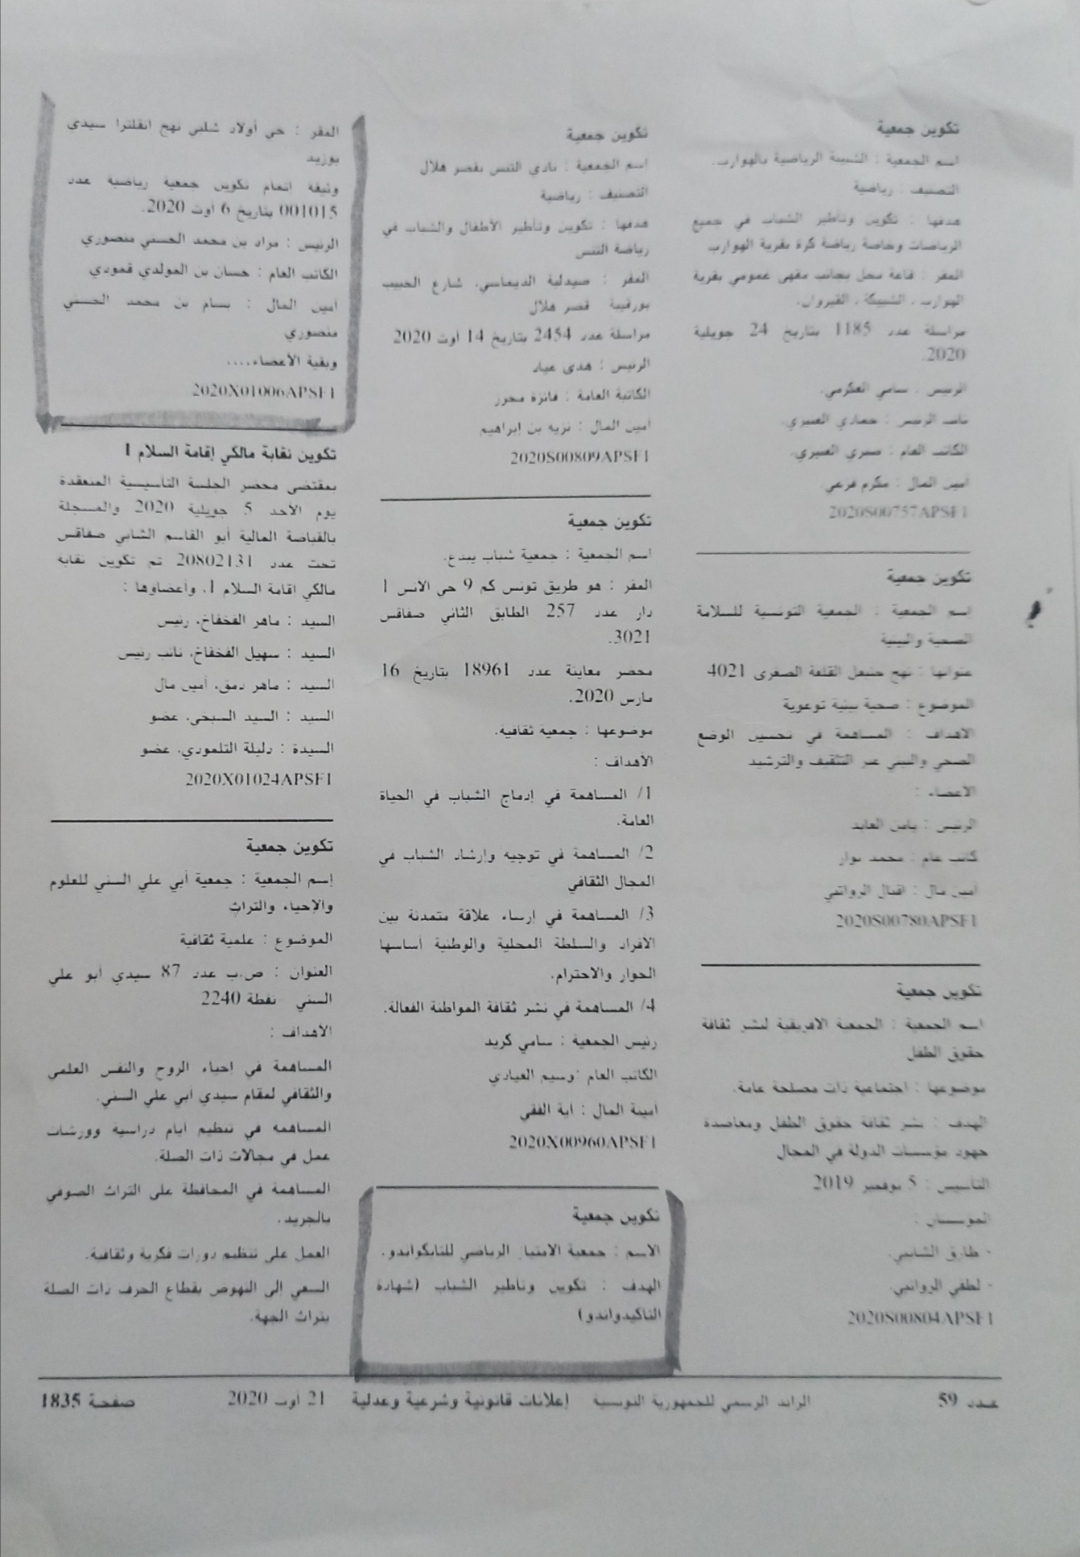 تكوين جمعية
اسم الجمعية : الشبيبة الرياضية بالهوارب.
التصنيف : رياضية
هدفها : تكوين وتأطير الشباب في جميع
الرياضات وخاصة رياضة كرة بقرية الهوارب
المقر : قاعة محل بجانب مقهى عمومي بقرية
الهوارب ـ الشبيكة ـ القيروان.
مراسلة عدد 1185 بتاريخ 24 جويلية
2020.
الرئيس : سامي العكرمي.
نائب الرئيس : حمادي العبيري.
الكاتب العام : صبري العبيري.
أمين المال : مكرم فرعي.
2020S00757APSF1
تكوين جمعية
إسم الجمعية : الجمعية التونسية للسلامة
الصحية والبيئية
عنوانها : نهج حنبعل القلعة الصغرى 4021
الموضوع : صحية بيئية توعوية
الاهداف : المساهمة في تحسين الوضع
الصحي والبيئي عبر التثقيف والترشيد
الاعضاء :
الرئيس : ياس العابد
كاتب عام : محمد نوار
أمين مال : اقبال الرواتبي
2020S00780APSF1
تكوين جمعية
اسم الجمعية : الجمعية الافريقية لنشر ثقافة
حقوق الطفل
موضوعها : اجتماعية ذات مصلحة عامة.
الهدف : نشر ثقافة حقوق الطفل ومعاضدة
جهود مؤسسات الدولة في المجال
التأسيس : 5 نوفمبر 2019
المؤسسان :
- طارق الشابي.
- لطفي الرواتبي.
2020S00804APSF1
تكوين جمعية
اسم الجمعية : نادي التنس بقصر هلال
التصنيف : رياضية
هدفها : تكوين وتأطير الأطفال والشباب في
رياضة التنس
المقر : صيدلية الديماسي، شارع الحبيب
بورقيبة قصر هلال
مراسلة عدد 2454 بتاريخ 14 أوت 2020
الرئيس : هدى عياد
الكاتبة العامة : فائزة محرز
أمين المال : نزيه بن إبراهيم
2020S00809APSF1
تكوين جمعية
اسم الجمعية : جمعية شباب يبدع.
المقر : هو طريق تونس كم 9 حي الانس 1
دار عدد 257 الطابق الثاني صفاقس
3021.
محضر معاينة عدد 18961 بتاريخ 16
مارس 2020.
موضوعها : جمعية ثقافية.
الأهداف :
1/ المساهمة في إدماج الشباب في الحياة
العامة.
2/ المساهمة في توجيه وإرشاد الشباب في
المجال الثقافي
3/ المساهمة في إرساء علاقة متمدنة بين
الأفراد والسلطة المحلية والوطنية أساسها
الحوار والاحترام.
4/ المساهمة في نشر ثقافة المواطنة الفعالة.
رئيس الجمعية : سامي كريد
الكاتب العام : وسيم العيادي
أمينة المال : آية الفقي
2020X00960APSF1
تكوين جمعية
الاسم : جمعية الامتياز الرياضي للتايكواندو.
الهدف : تكوين وتأطير الشباب (شهادة
التاكيدواندو)
المقر : حي أولاد شلبي نهج انقلترا سيدي
بوزيد
وثيقة اتمام تكوين جمعية رياضية عدد
001015 بتاريخ 6 أوت 2020.
الرئيس : مراد بن محمد الحسني منصوري
الكاتب العام : حسان بن المولدي قمودي
أمين المال : بسام بن محمد الحسني
منصوري
وبقية الأعضاء....
2020X01006APSF1
تكوين نقابة مالكي إقامة السلام 1
بمقتضى محضر الجلسة التأسيسية المنعقدة
يوم الأحد 5 جويلية 2020 والمسجلة
بالقباضة المالية أبو القاسم الشابي صفاقس
تحت عدد 20802131 تم تكوين نقابة
مالكي اقامة السلام 1، وأعضاؤها :
السيد : ماهر الفخفاخ، رئيس
السيد : سهيل الفخفاخ، نائب رئيس
السيد : ماهر دمق، أمين مال
السيد : السيد السبخي، عضو
السيدة : دليلة التلمودي، عضو
2020X01024APSF1
تكوين جمعية
إسم الجمعية : جمعية أبي علي السني للعلوم
والإحياء والتراث
الموضوع : علمية ثقافية
العنوان : ص.ب عدد 87 سيدي أبو علي
السني نفطة 2240
الأهداف :
المساهمة في احياء الروح والنفس العلمي
والثقافي لمقام سيدي أبي علي السني.
المساهمة في تنظيم أيام دراسية وورشات
عمل في مجالات ذات الصلة.
المساهمة في المحافظة على التراث الصوفي
بالجريد.
العمل على تنظيم دورات فكرية وثقافية.
السعي إلى النهوض بقطاع الحرف ذات الصلة
بتراث الجهة.
عدد 59 الرائد الرسمي للجمهورية التونسية إعلانات قانونية وشرعية وعدلية 21 أوت 2020 صفحة 1835